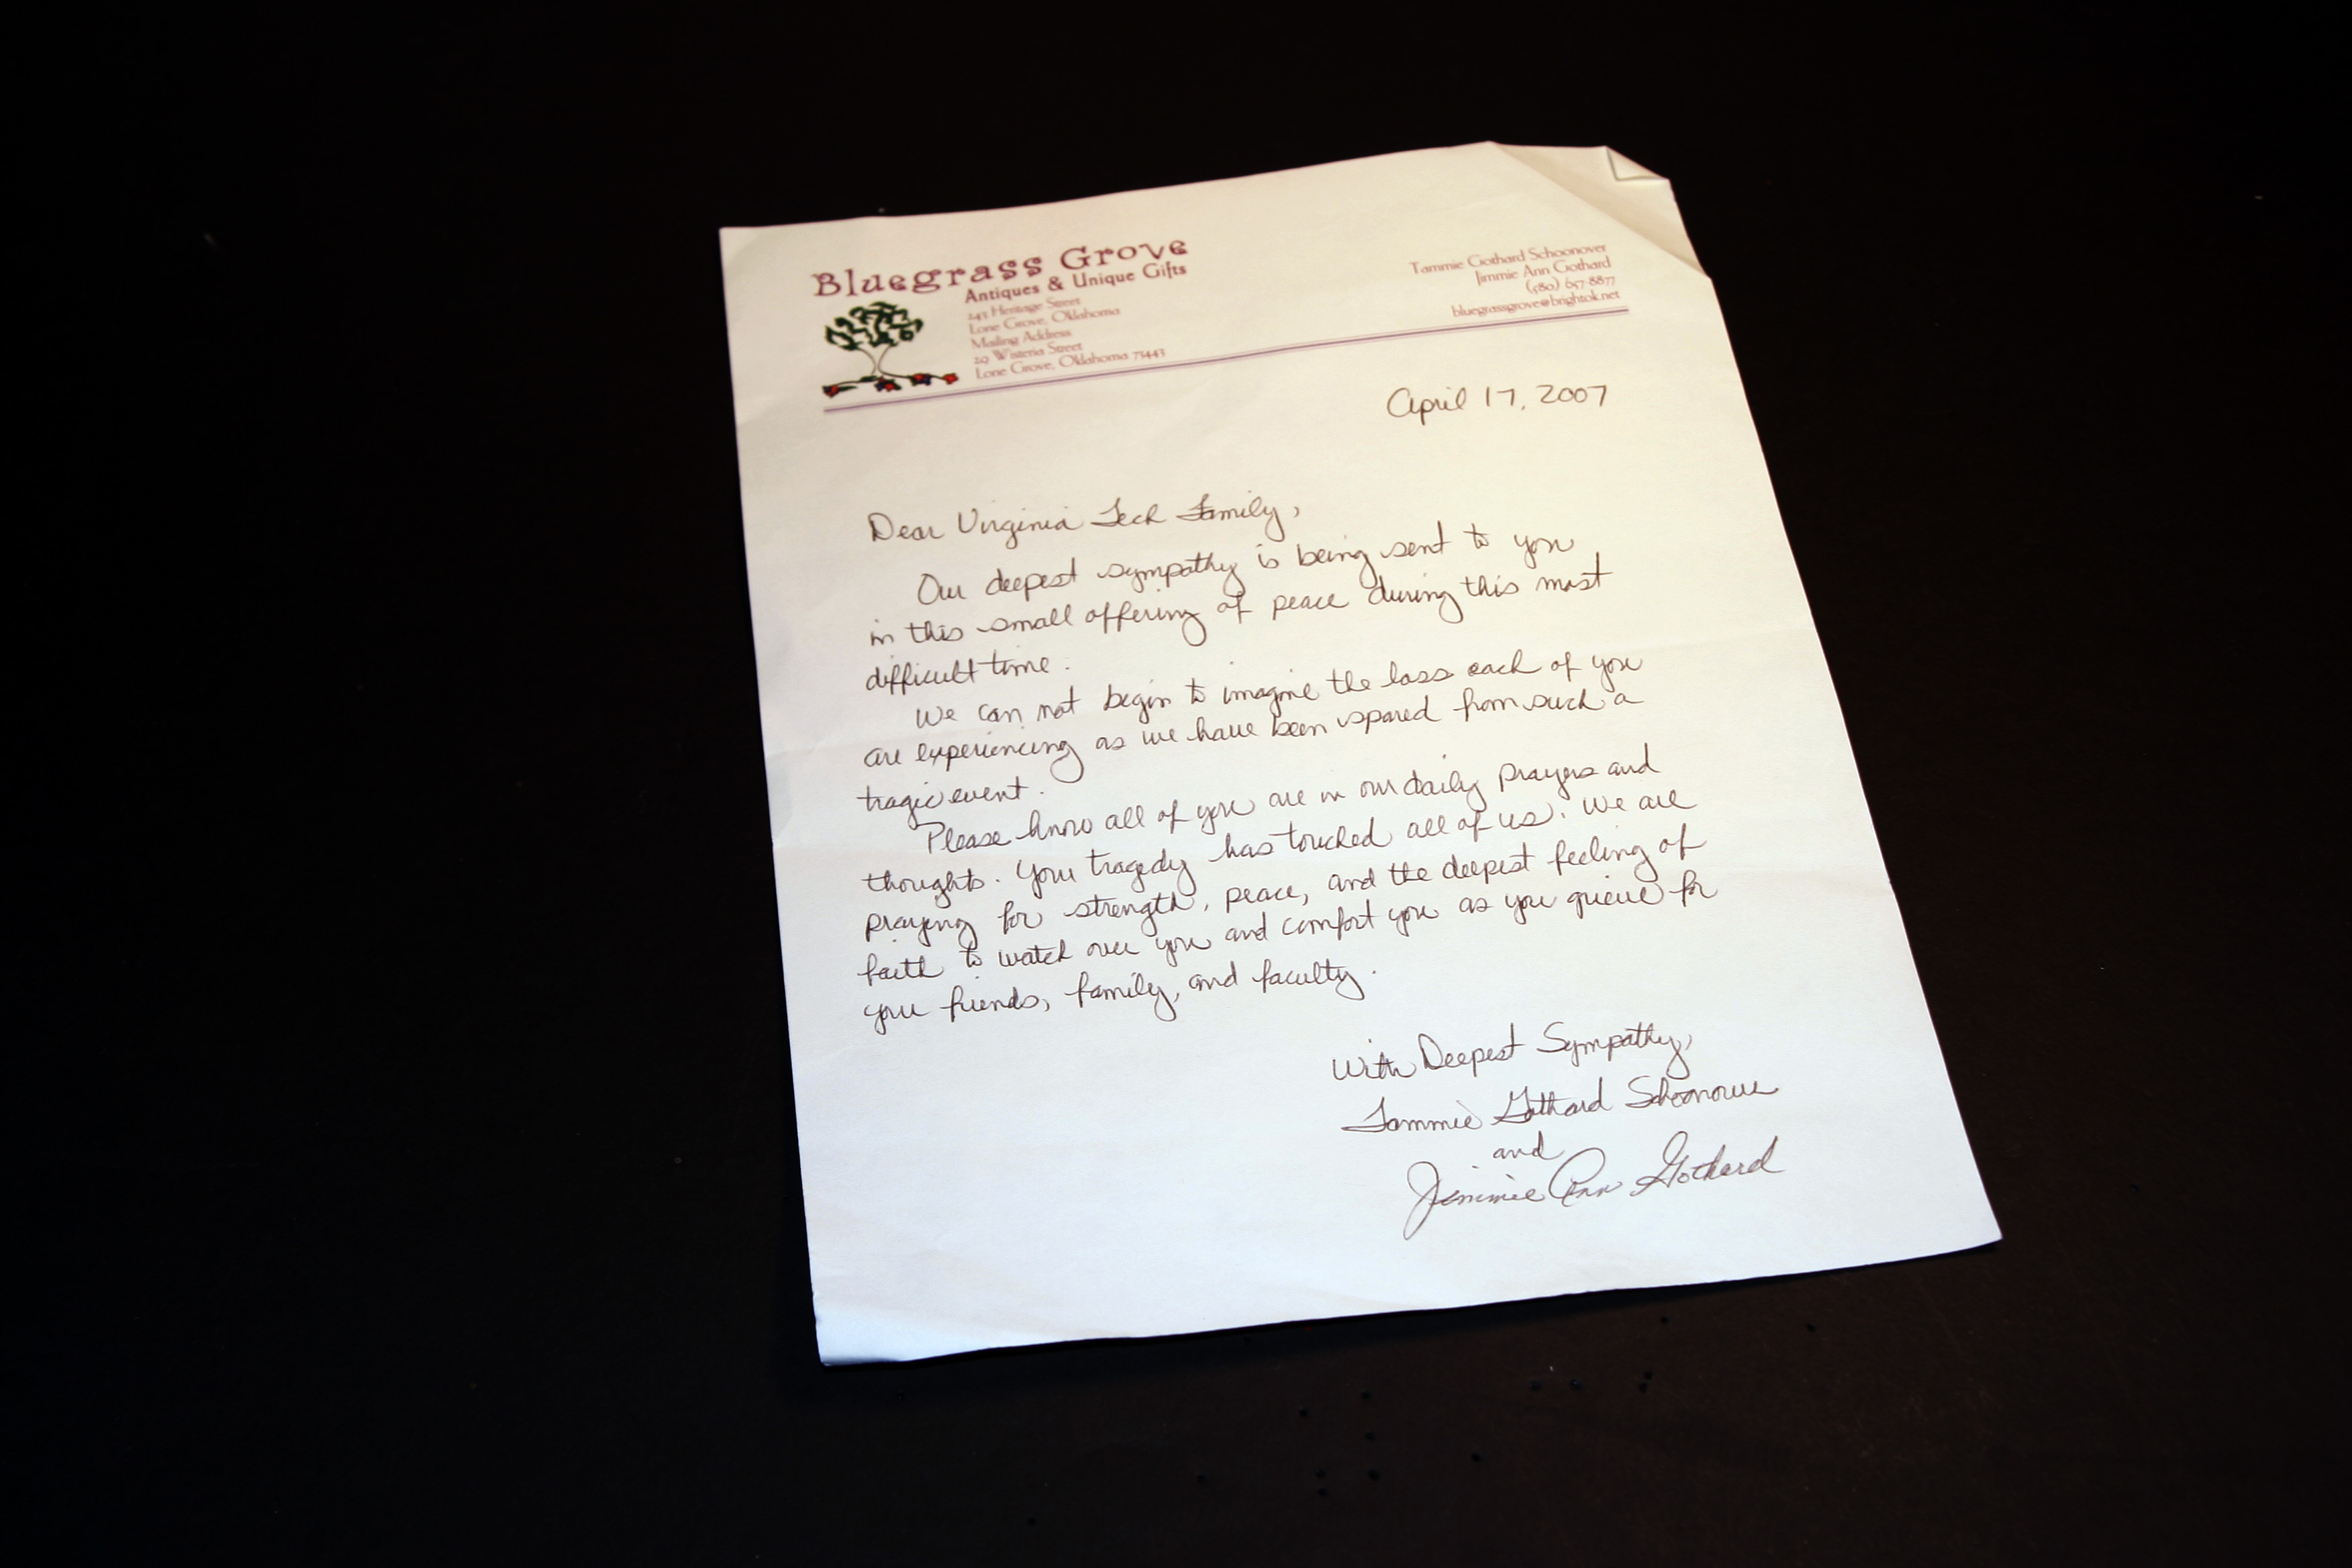 Bluegrass Grove
Antiques & Unique Gifts
243 Heritage Street
Lone Grove, Oklahoma
Mailing Address
29 Wisteria Street
Lone Grove, Oklahoma 73443
Tammie Gothard Schoonover
Jimmie Ann Gothard
(580) 657-8877
bluegrassgrove@brightok.net
April 17, 2007
Dear Virginia Tech Family,
Our deepest sympathy is being sent to you
in this small offering of peace during this most
difficult time.
We can not begin to imagine the loss each of you
are experiencing as we have been spared from such a
tragic event.
Please know all of you are in our daily prayers and
thoughts. Your tragedy has touched all of us. We are
praying for strength, peace, and the deepest feeling of
faith to watch over you and comfort you as you grieve for
your friends, family, and faculty.
With Deepest Sympathy,
Tammie Gothard Schoonover
and
Jimmie Ann Gothard